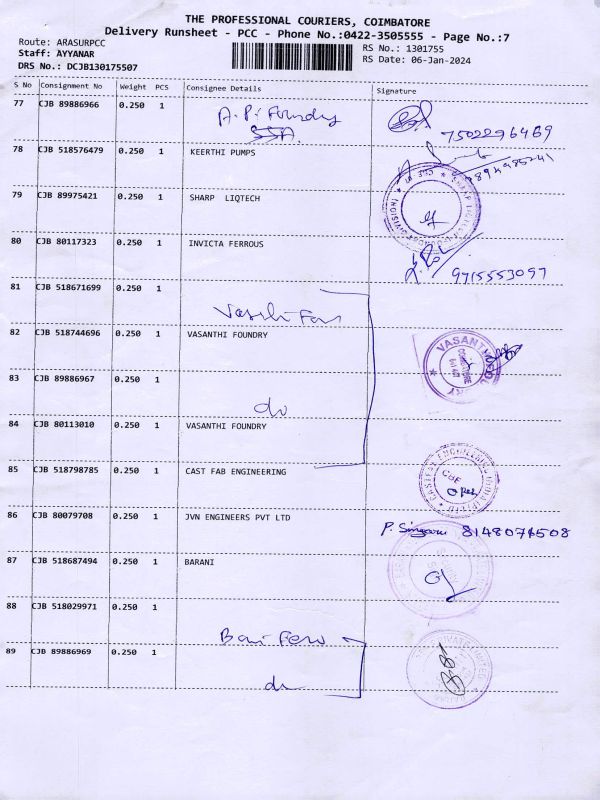 THE PROFESSIONAL COURIERS, COIMBATORE
Delivery Runsheet - PCC - Phone No.:0422-3505555 - Page No.:7
Route: ARASURPCC
RS No.: 1301755
Staff: AYYANAR
RS Date: 06-Jan-2024
DRS No.: DCJB130175507
S No Consignment No Weight PCS Consignee Details Signature
77 CJB 89886966 0.250 1 A.P. Foundry
SSA.
7502296469
78 CJB 518576479 0.250 1 KEERTHI PUMPS
79 CJB 89975421 0.250 1 SHARP LIQTECH
80 CJB 80117323 0.250 1 INVICTA FERROUS
9715553097
81 CJB 518671699 0.250 1
82 CJB 518744696 0.250 1 VASANTHI FOUNDRY
VASANTHI
83 CJB 89886967 0.250 1
do
84 CJB 80113010 0.250 1 VASANTHI FOUNDRY
85 CJB 518798785 0.250 1 CAST FAB ENGINEERING
CBE
86 CJB 80079708 0.250 1 JVN ENGINEERS PVT LTD
8148074508
87 CJB 518687494 0.250 1 BARANI
88 CJB 518029971 0.250 1
89 CJB 89886969 0.250 1
do